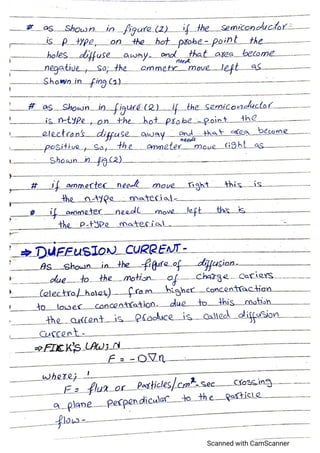 * as shown in figure (2) if the semiconductor
is P type, on the hot probe-point the
holes diffuse away. and that area become
negative, so; the ammetr needl move left as
Shown in fing(2)
# as shown in figure (2) if the semiconductor
is n-type, on the hot probe-point the
electrons diffuse away and that area become
positive, so, the ammeter needl move right as
shown in fig(2)
# if ammerter needl move right this is
the n-type material-
* if ammeter needl move left this is
the p-type material.
⇒ DUFFUSION CURRENT-
As shown in the figure of diffusion.
due to the motion of charge cariers
(electro/holes) from higher concentraction
to lower concentration. due to this motion
the current is produce is called diffusion
current-
⇒ FICK'S LAW; N
F = -D∇n
where;
F = flux or Particles/cm²-sec crossing
a plane perpendicular to the particle
flow-
Scanned with CamScanner